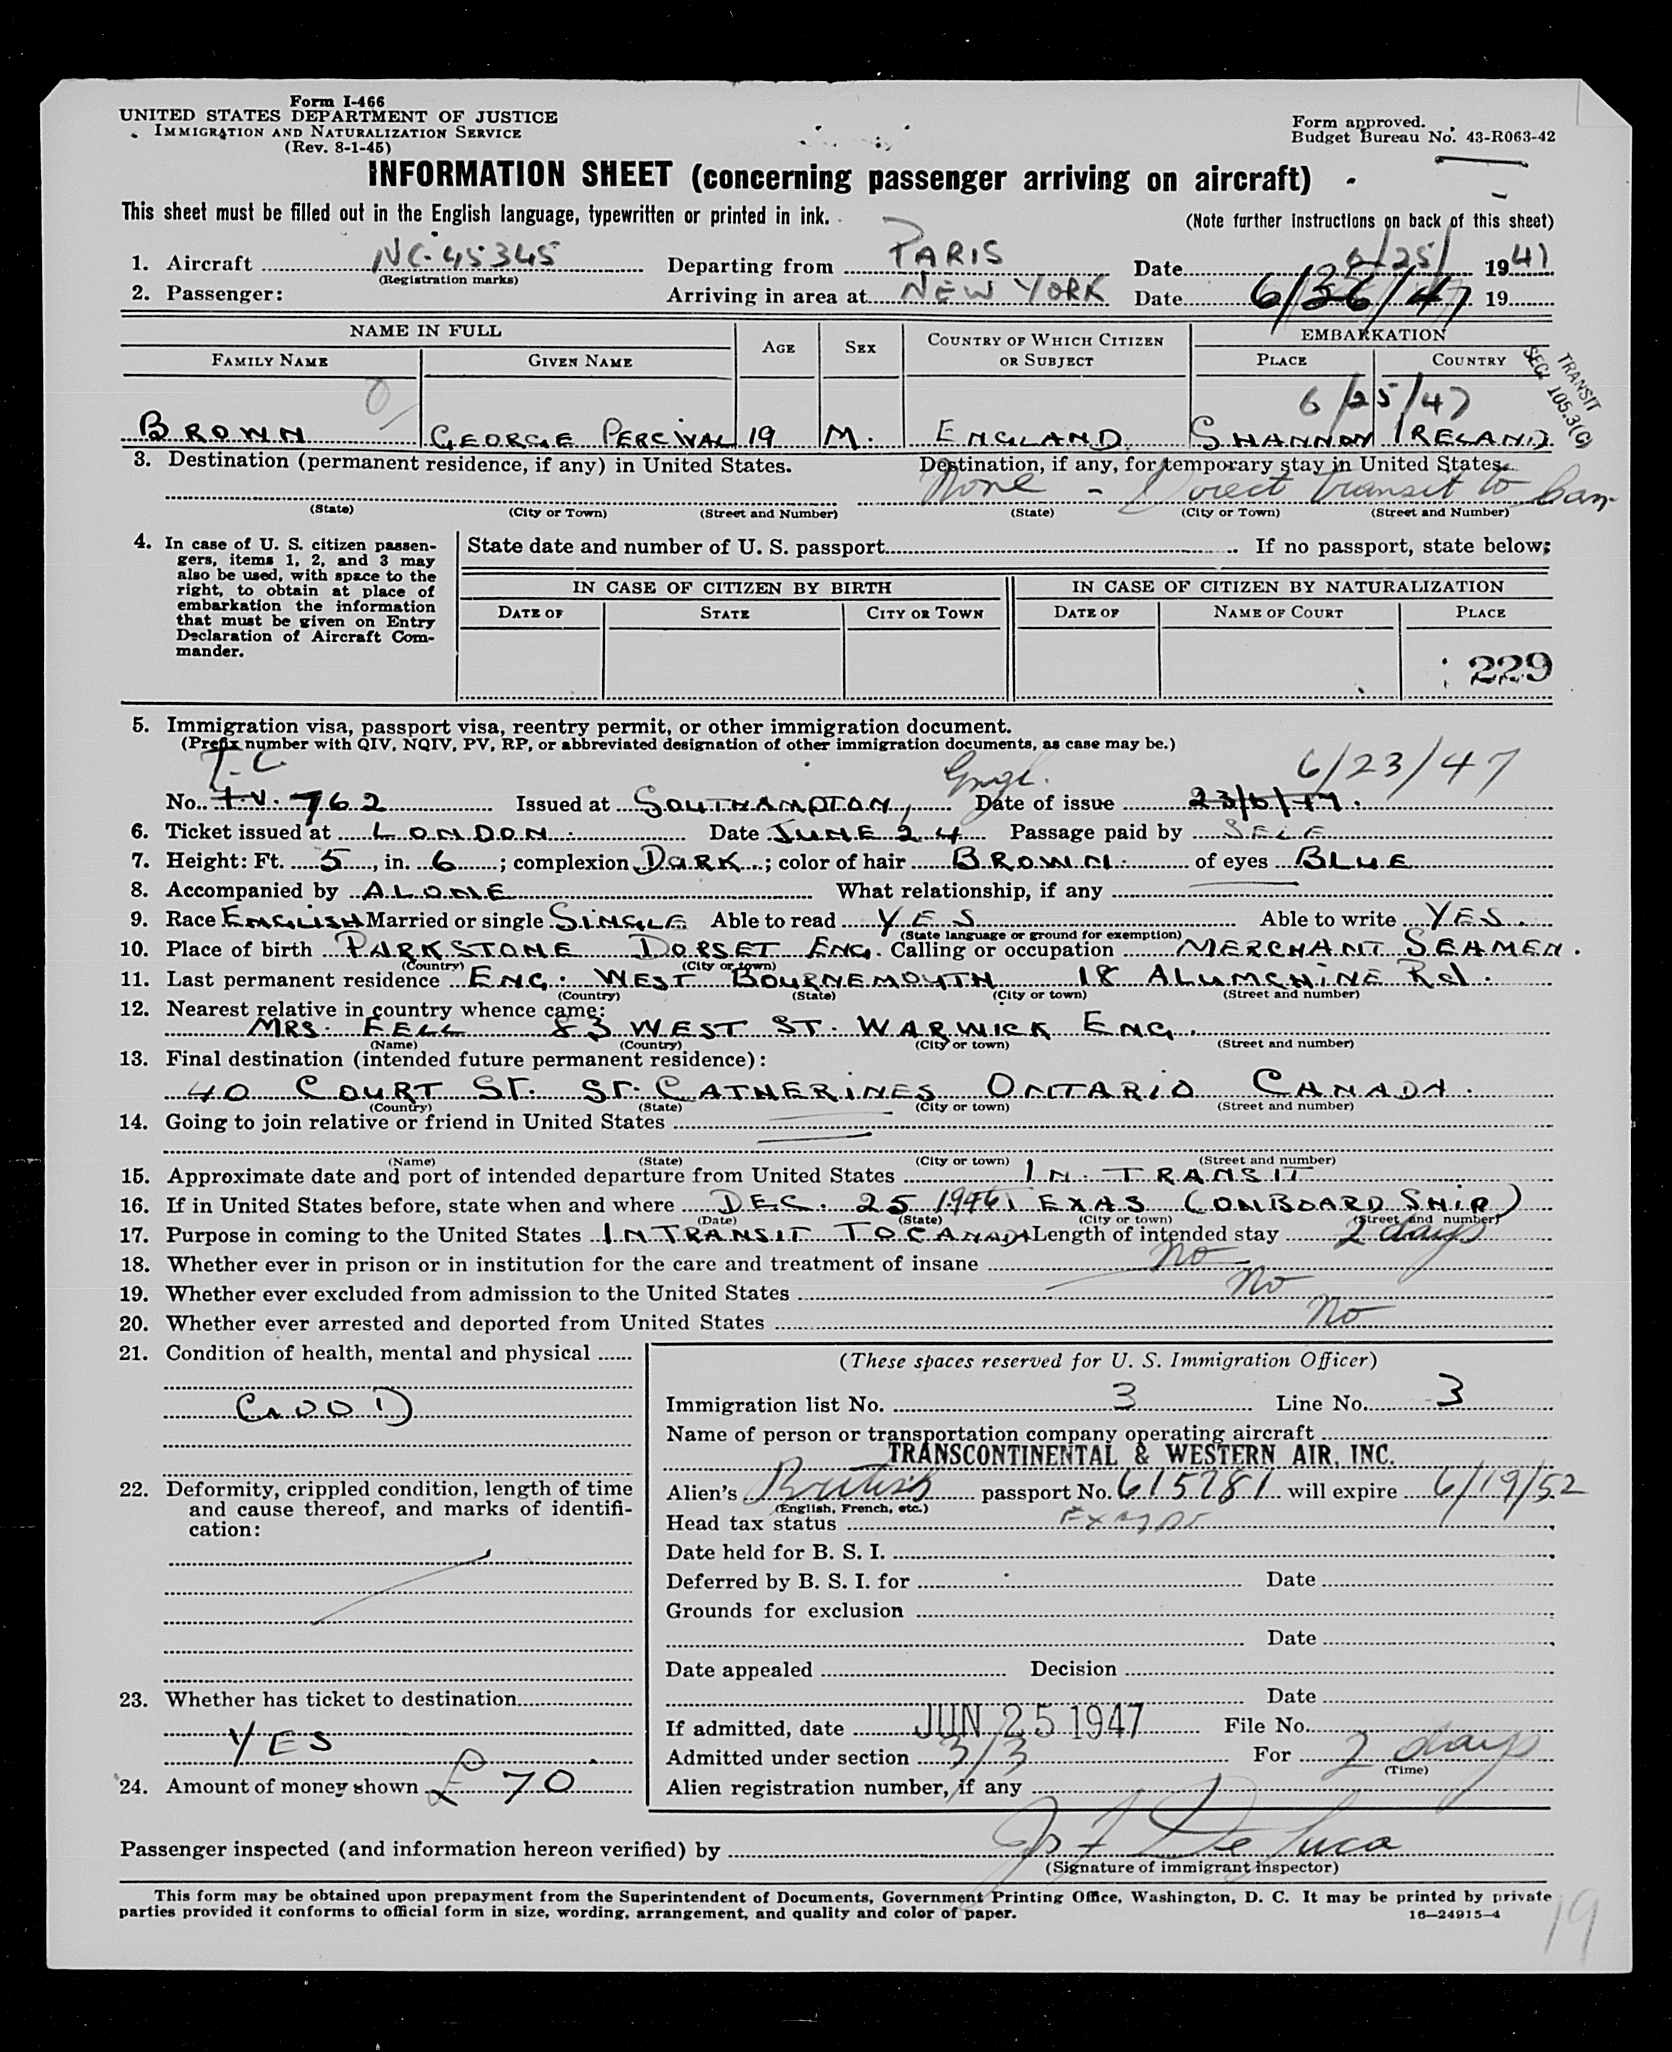 Form I-466
UNITED STATES DEPARTMENT OF JUSTICE
IMMIGRATION AND NATURALIZATION SERVICE
(Rev. 8-1-45)
Form approved.
Budget Bureau No. 43-R063-42
INFORMATION SHEET (concerning passenger arriving on aircraft)
This sheet must be filled out in the English language, typewritten or printed in ink.
(Note further instructions on back of this sheet)
1. Aircraft NC-45345 Departing from PARIS Date 6/25/ 1947
(Registration marks)
2. Passenger: Arriving in area at NEW YORK Date 6/26/47 19
NAME IN FULL
AGE SEX COUNTRY OF WHICH CITIZEN OR SUBJECT EMBARKATION
FAMILY NAME GIVEN NAME PLACE COUNTRY
TRANSIT
SEC. 105.3(C)
6/25/47
BROWN GEORGE PERCIVAL 19 M. ENGLAND SHANNON IRELAND
3. Destination (permanent residence, if any) in United States. Destination, if any, for temporary stay in United States.
None - Direct transit to Can
(State) (City or Town) (Street and Number) (State) (City or Town) (Street and Number)
4. In case of U. S. citizen passen-
gers, items 1, 2, and 3 may
also be used, with space to the
right, to obtain at place of
embarkation the information
that must be given on Entry
Declaration of Aircraft Com-
mander.
State date and number of U. S. passport If no passport, state below:
IN CASE OF CITIZEN BY BIRTH IN CASE OF CITIZEN BY NATURALIZATION
DATE OF STATE CITY OR TOWN DATE OF NAME OF COURT PLACE
229
5. Immigration visa, passport visa, reentry permit, or other immigration document.
(Prefix number with QIV, NQIV, PV, RP, or abbreviated designation of other immigration documents, as case may be.)
T.C. 6/23/47
No. T.V. 762 Issued at SOUTHAMPTON, Engl. Date of issue 23/6/47.
6. Ticket issued at LONDON. Date JUNE 24 Passage paid by SELF
7. Height: Ft. 5, in. 6; complexion DARK; color of hair BROWN. of eyes BLUE
8. Accompanied by ALONE What relationship, if any
9. Race ENGLISH Married or single SINGLE Able to read YES Able to write YES.
(State language or ground for exemption)
10. Place of birth PARKSTONE DORSET ENG. Calling or occupation MERCHANT SEAMEN.
(Country) (City or town)
11. Last permanent residence ENG. WEST BOURNEMOUTH 18 ALUMCHINE Rd.
(Country) (State) (City or town) (Street and number)
12. Nearest relative in country whence came:
MRS. FELL 83 WEST ST. WARWICK ENG.
(Name) (Country) (City or town) (Street and number)
13. Final destination (intended future permanent residence):
40 COURT ST. ST. CATHERINES ONTARIO CANADA.
(Country) (State) (City or town) (Street and number)
14. Going to join relative or friend in United States
(Name) (State) (City or town) (Street and number)
15. Approximate date and port of intended departure from United States IN TRANSIT
16. If in United States before, state when and where DEC. 25 1946 TEXAS (ONBOARD SHIP)
(Date) (State) (City or town) (Street and number)
17. Purpose in coming to the United States IN TRANSIT TO CANADA Length of intended stay 2 days
18. Whether ever in prison or in institution for the care and treatment of insane No
19. Whether ever excluded from admission to the United States No
20. Whether ever arrested and deported from United States No
21. Condition of health, mental and physical
GOOD
22. Deformity, crippled condition, length of time
and cause thereof, and marks of identifi-
cation:
23. Whether has ticket to destination
YES
24. Amount of money shown £ 70
(These spaces reserved for U. S. Immigration Officer)
Immigration list No. 3 Line No. 3
Name of person or transportation company operating aircraft
TRANSCONTINENTAL & WESTERN AIR, INC.
Alien's British passport No. 615781 will expire 6/19/52
(English, French, etc.)
Head tax status Exempt
Date held for B. S. I.
Deferred by B. S. I. for Date
Grounds for exclusion
Date
Date appealed Decision
Date
If admitted, date JUN 25 1947 File No.
Admitted under section 3/3 For 2 days
(Time)
Alien registration number, if any
Passenger inspected (and information hereon verified) by Jos F De Luca
(Signature of immigrant inspector)
This form may be obtained upon prepayment from the Superintendent of Documents, Government Printing Office, Washington, D. C. It may be printed by private
parties provided it conforms to official form in size, wording, arrangement, and quality and color of paper.
16—24915-4
19